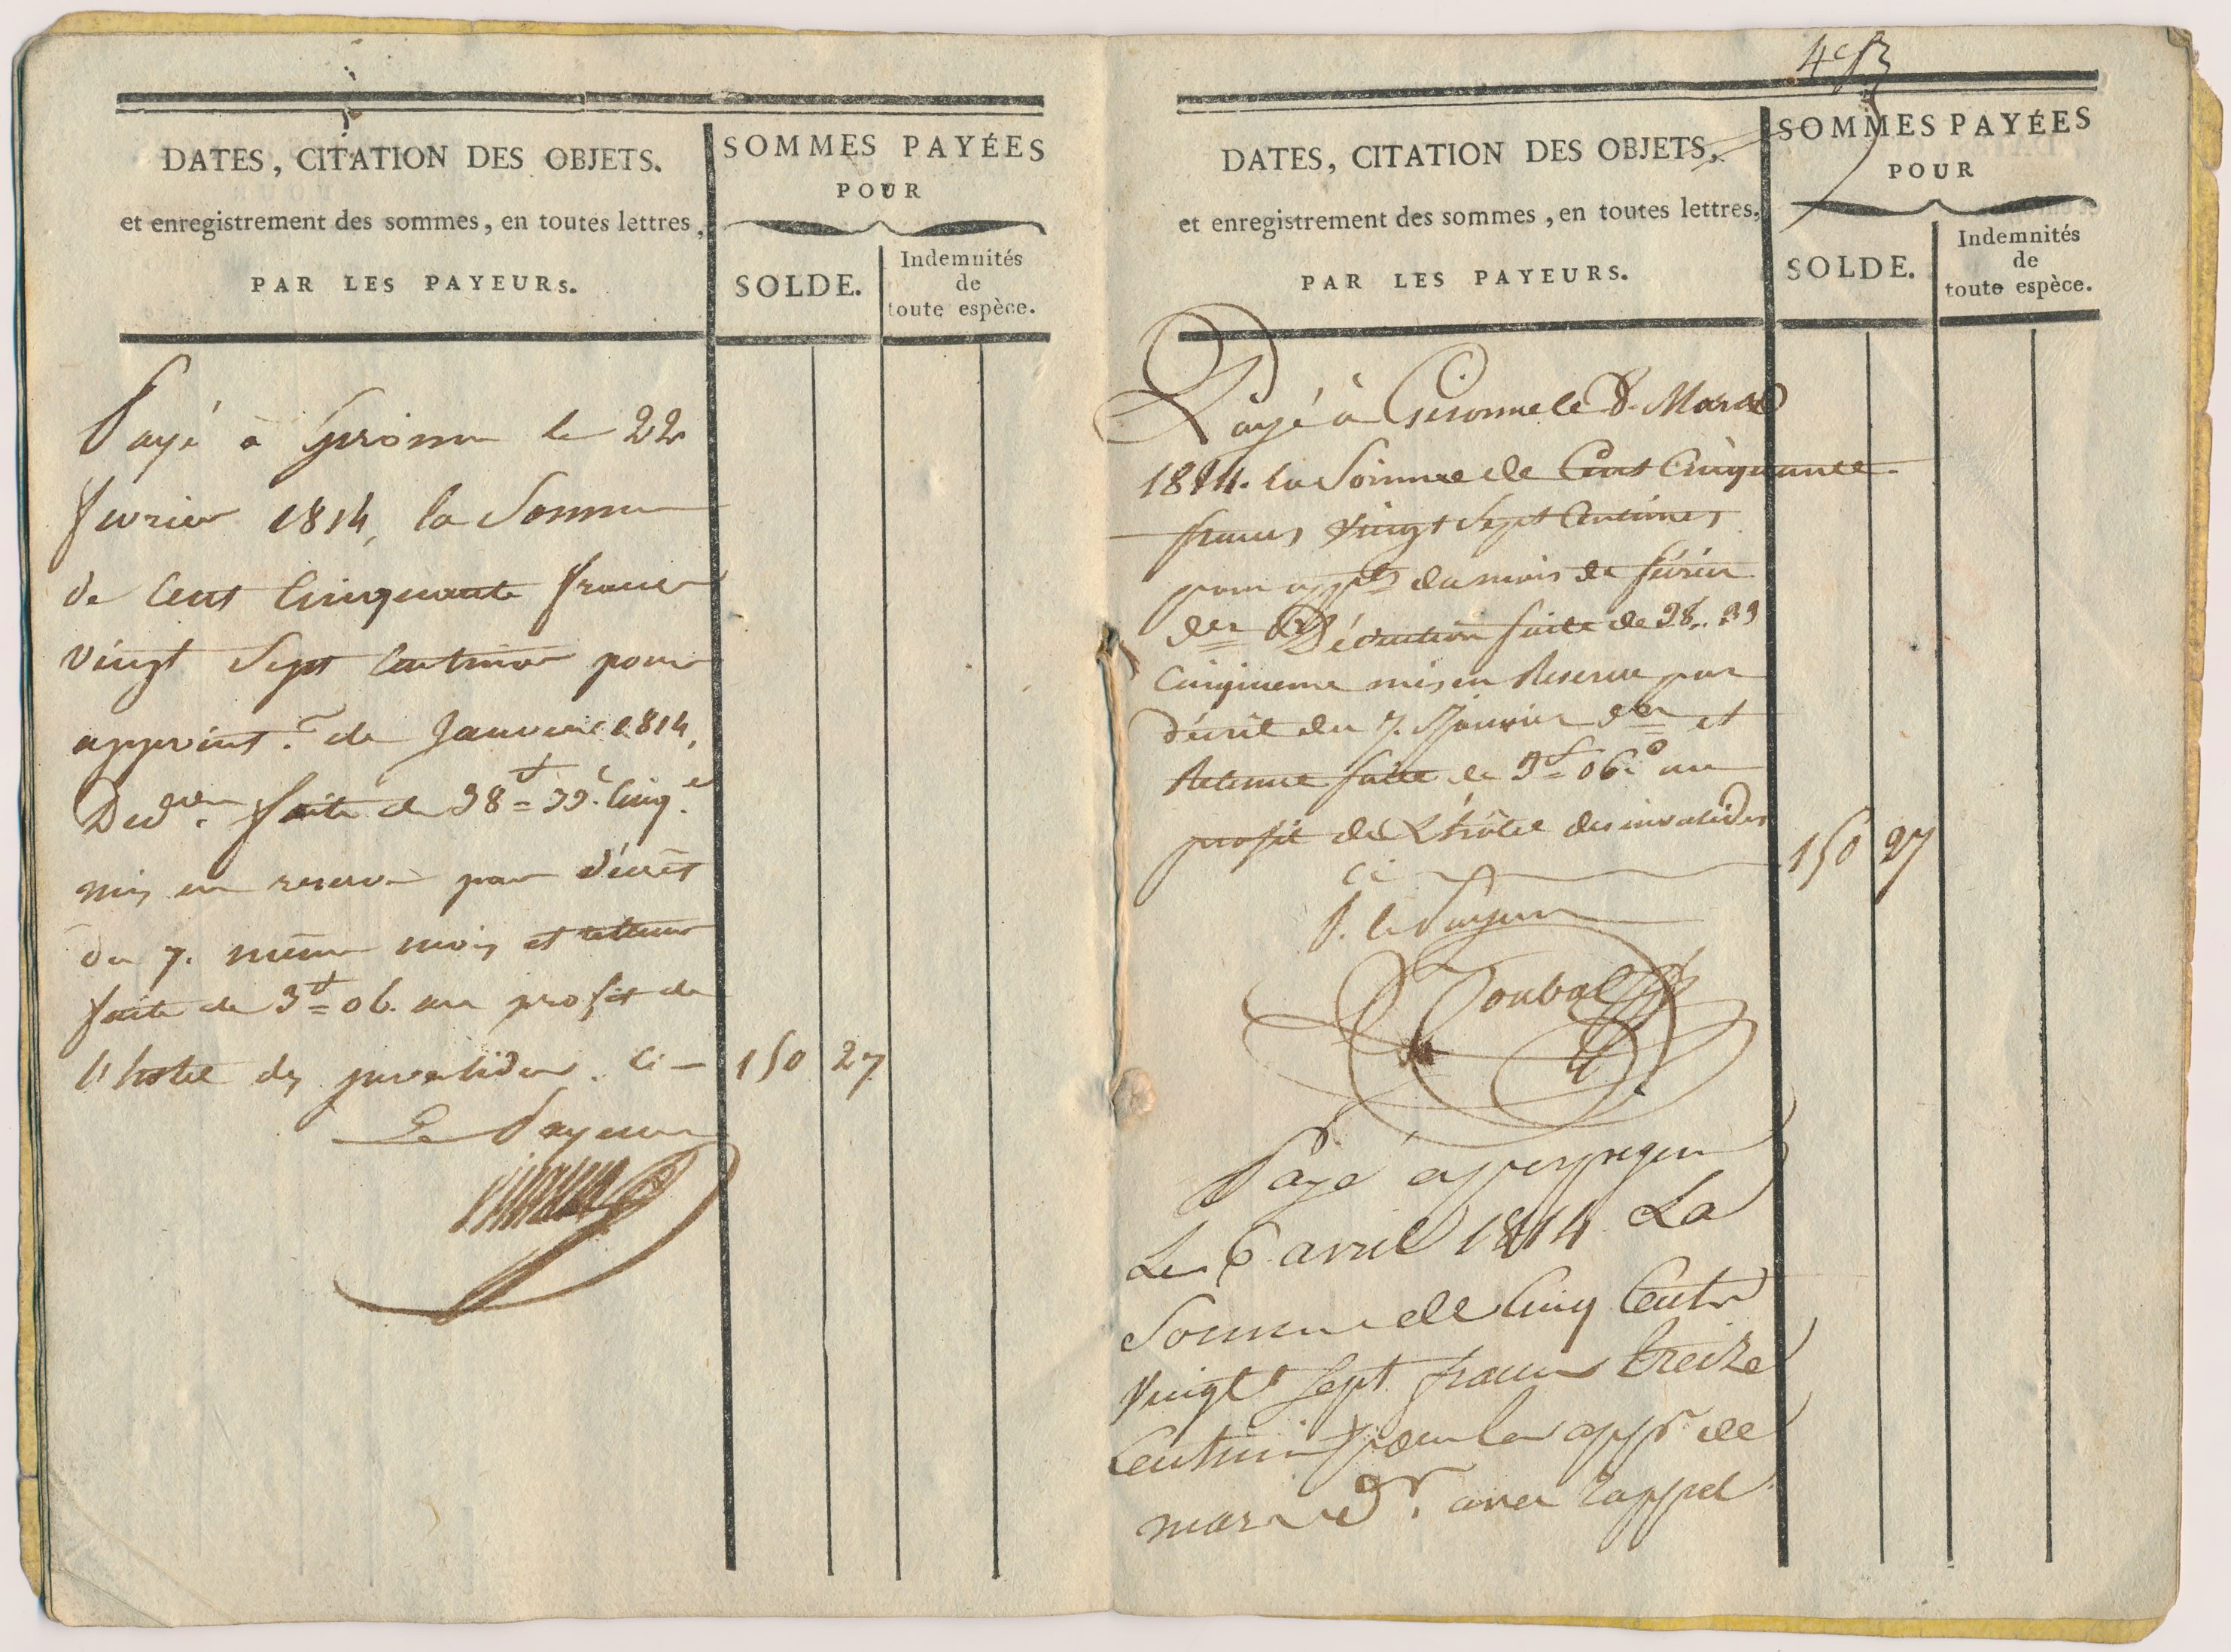 DATES, CITATION DES OBJETS.
et enregistrement des sommes, en toutes lettres,
PAR LES PAYEURS.
SOMMES PAYÉES
POUR
SOLDE.
Indemnités
de
toute espèce.
Payé à Gironne le 22
fevrier 1814, la Somme
de Cent Cinquante francs
vingt Sept Centimes pour
appoint.ts de Janvier 1814,
Ded.on faite de 38f=33c Cinq.e
mis en reserve par décrèt
du 7. même mois et retenue
faite de 3f=06. au profit de
l'hotel des invalides. Ci — 150 27
Le Payeur
DATES, CITATION DES OBJETS,
et enregistrement des sommes, en toutes lettres,
PAR LES PAYEURS.
SOMMES PAYÉES
POUR
SOLDE.
Indemnités
de
toute espèce.
Payé à Gironne le 8. Mars
1814. la Somme de Cent Cinquante
francs Vingt Sept Centimes
pour appts du mois de février
der Déduction faite de 38.. 33
Cinquieme mis en Reserve par
décrèt du 7. Janvier der et
Retenue faite de 3f=06c au
profit de L'hôtel des invalides
ci 150 27
P. le Payeur
Joubal
Payé a perpignan
Le 6 avril 1814 La
Somme de Cinq Cents
Vingt Sept francs treize
Centimes pour les appts de
mars dr. avec rappel